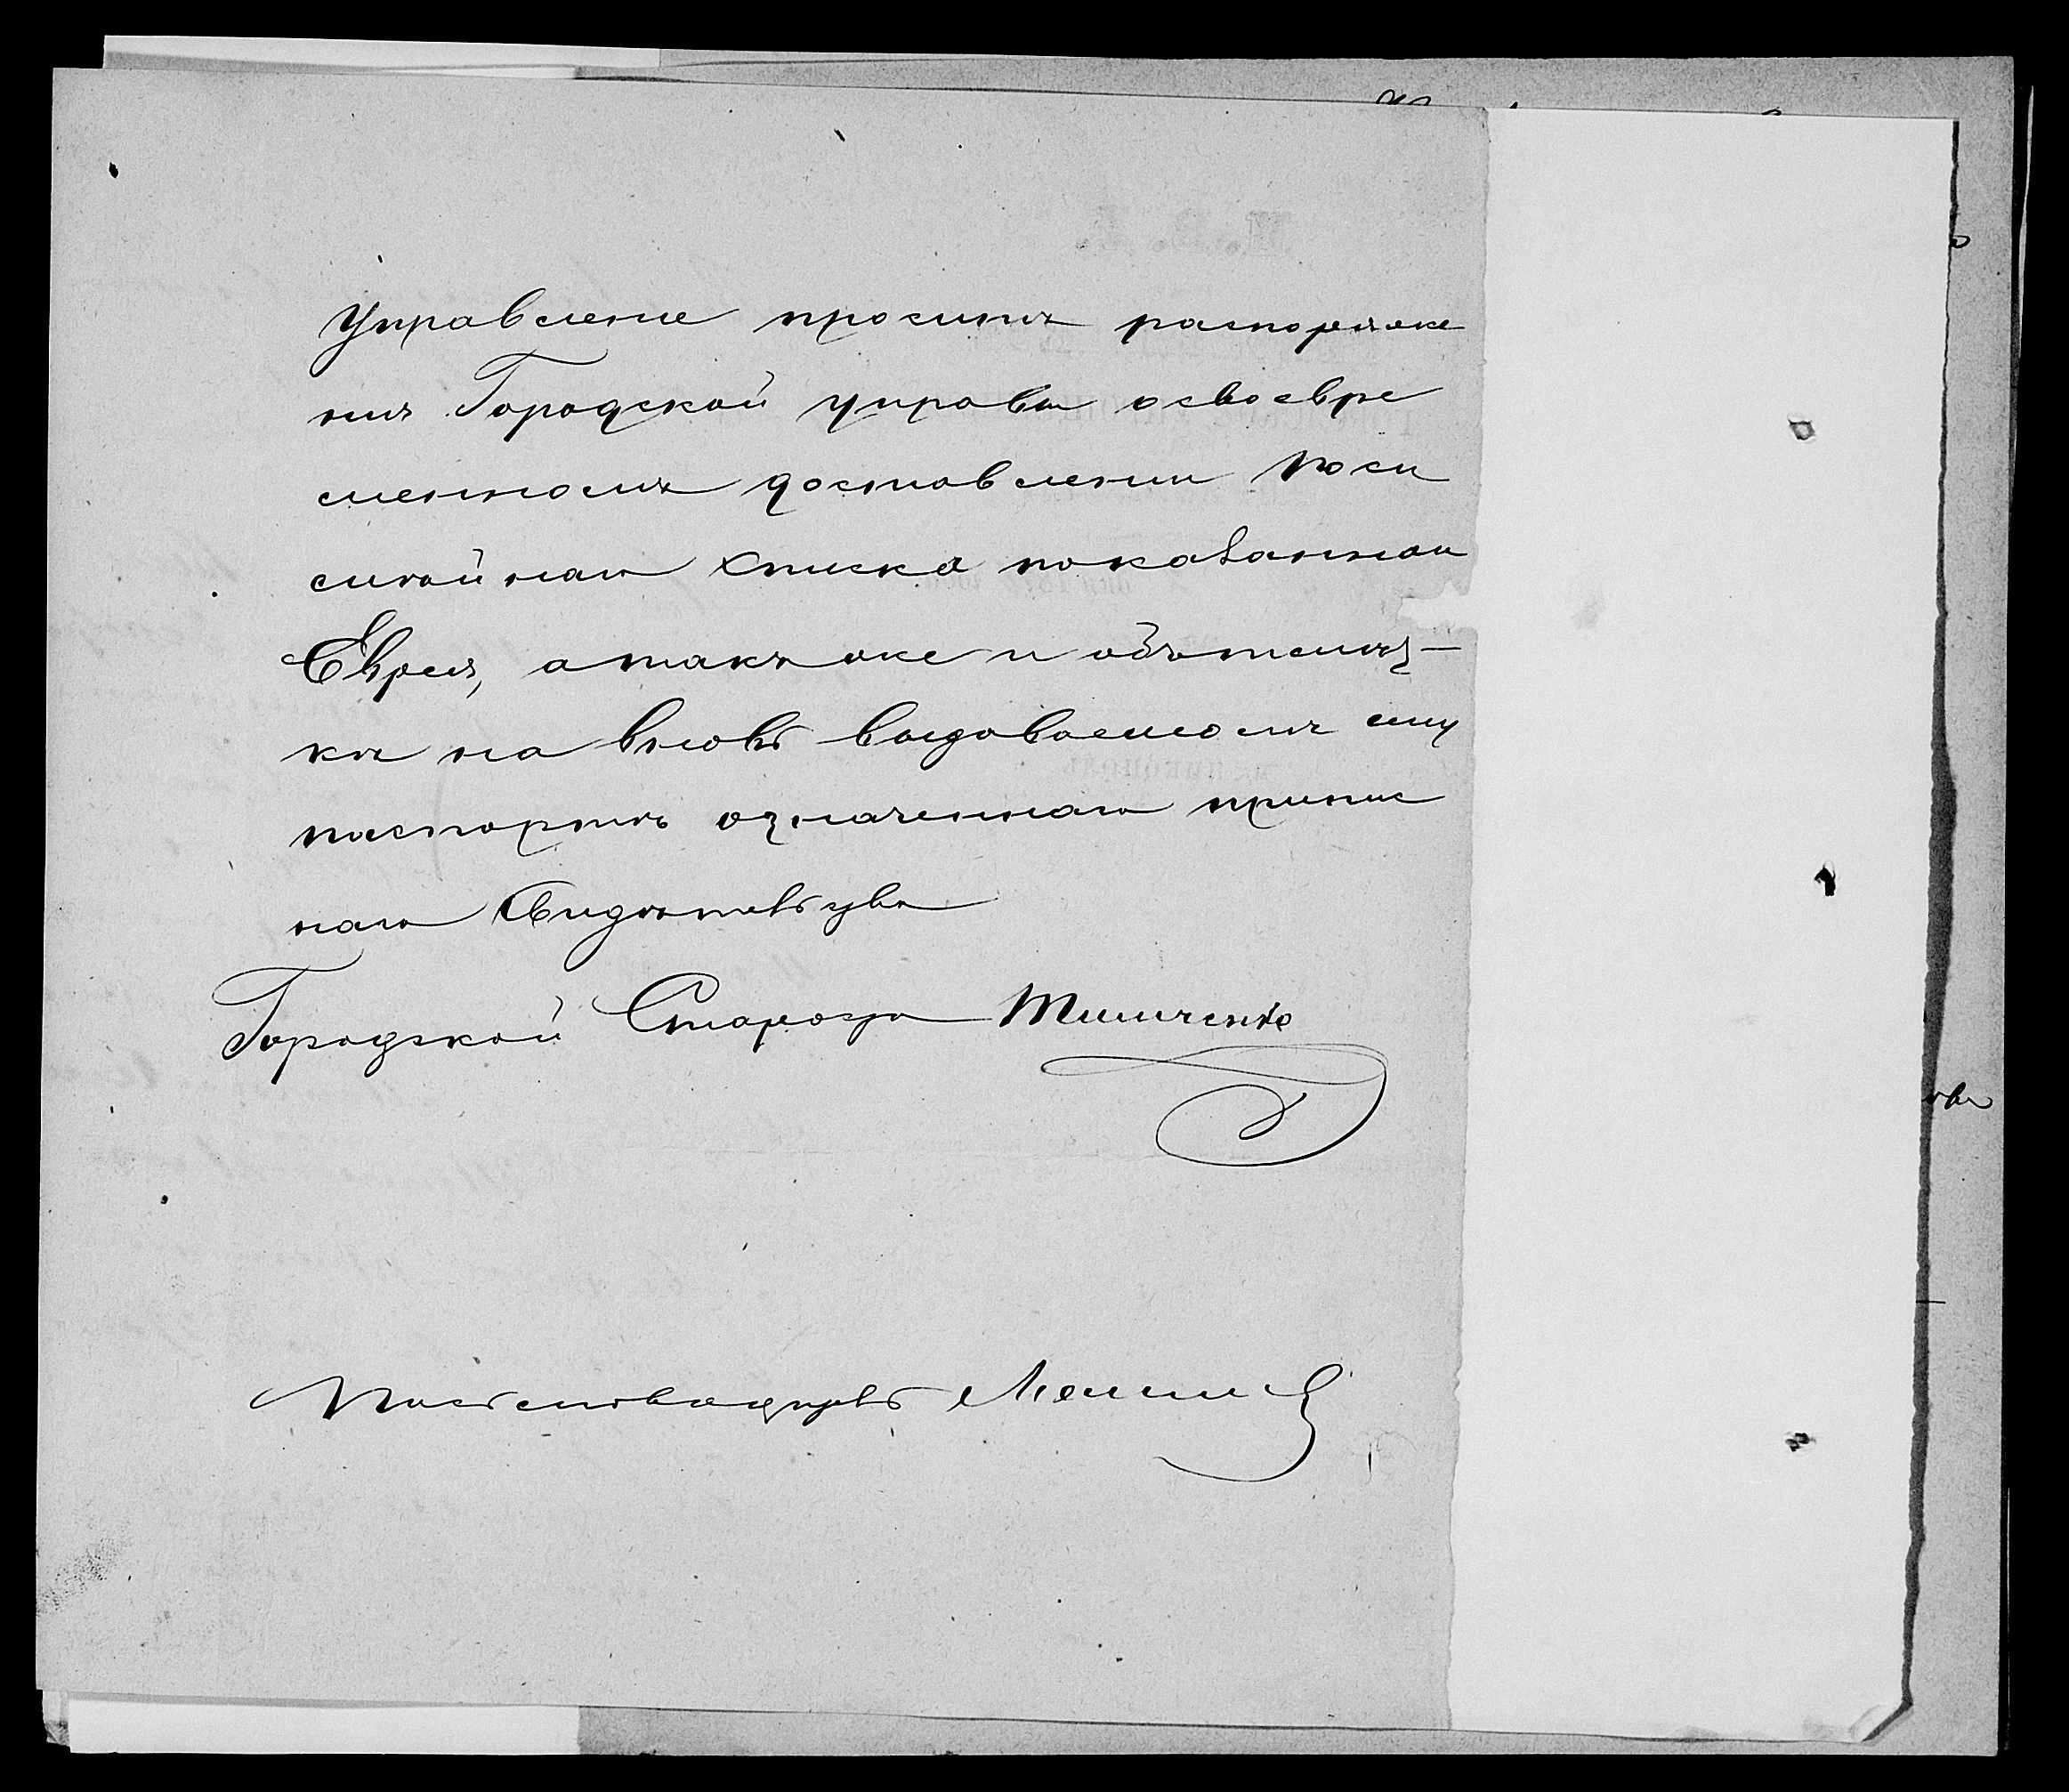 Управленіе проситъ распоряже
нія Городской управы освоевре
менномъ доставленіи Поси
мейнаго списка показаннаго
Еврея, а такъ же и объ отмѣт
кѣ на вновь выдаваемомъ ему
паспортѣ означеннаго припис
наго свидѣтельства
Городской Староста Тимченко
Письмоводитель